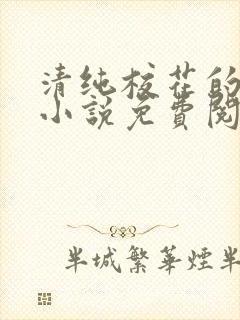 清纯校花的
小説免費閱
半城繁華煙半